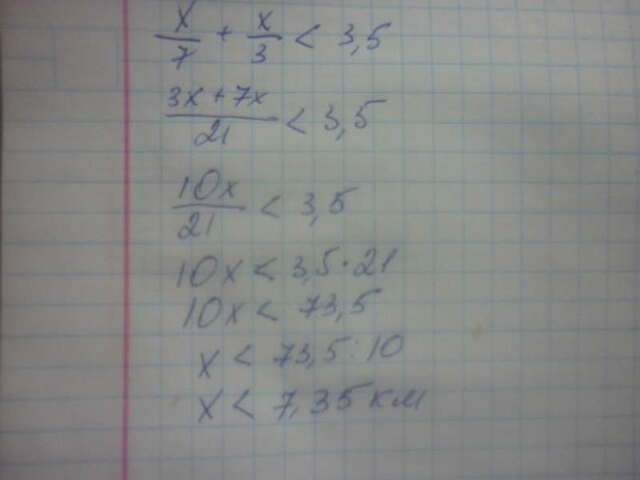 x/7 + x/3 < 3,5
3x + 7x/21 < 3,5
10x/21 < 3,5
10x < 3,5 · 21
10x < 73,5
x < 73,5 : 10
x < 7,35 км